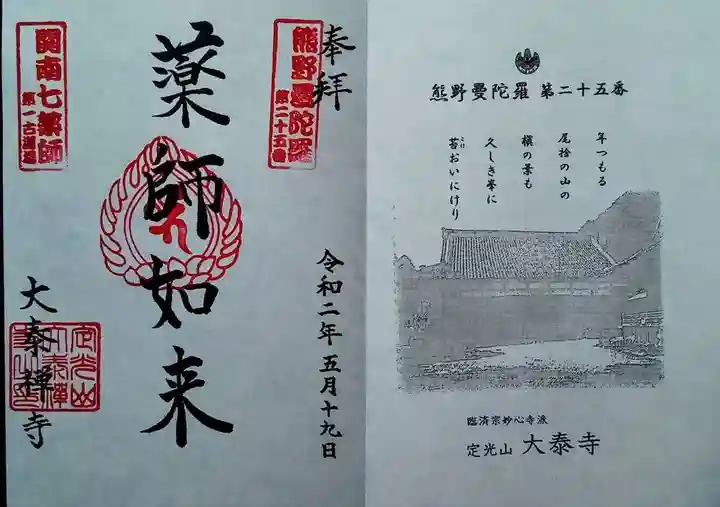 奉拝
熊野曼陀羅
第二十五番
薬師如来
関南七薬師
第一古道場
令和二年五月十九日
大泰禅寺
熊野曼陀羅 第二十五番
年つもる
尾捨の山の
槇の葉も
久しき峯に
苔おいにけり
臨済宗妙心寺派
定光山 大泰寺